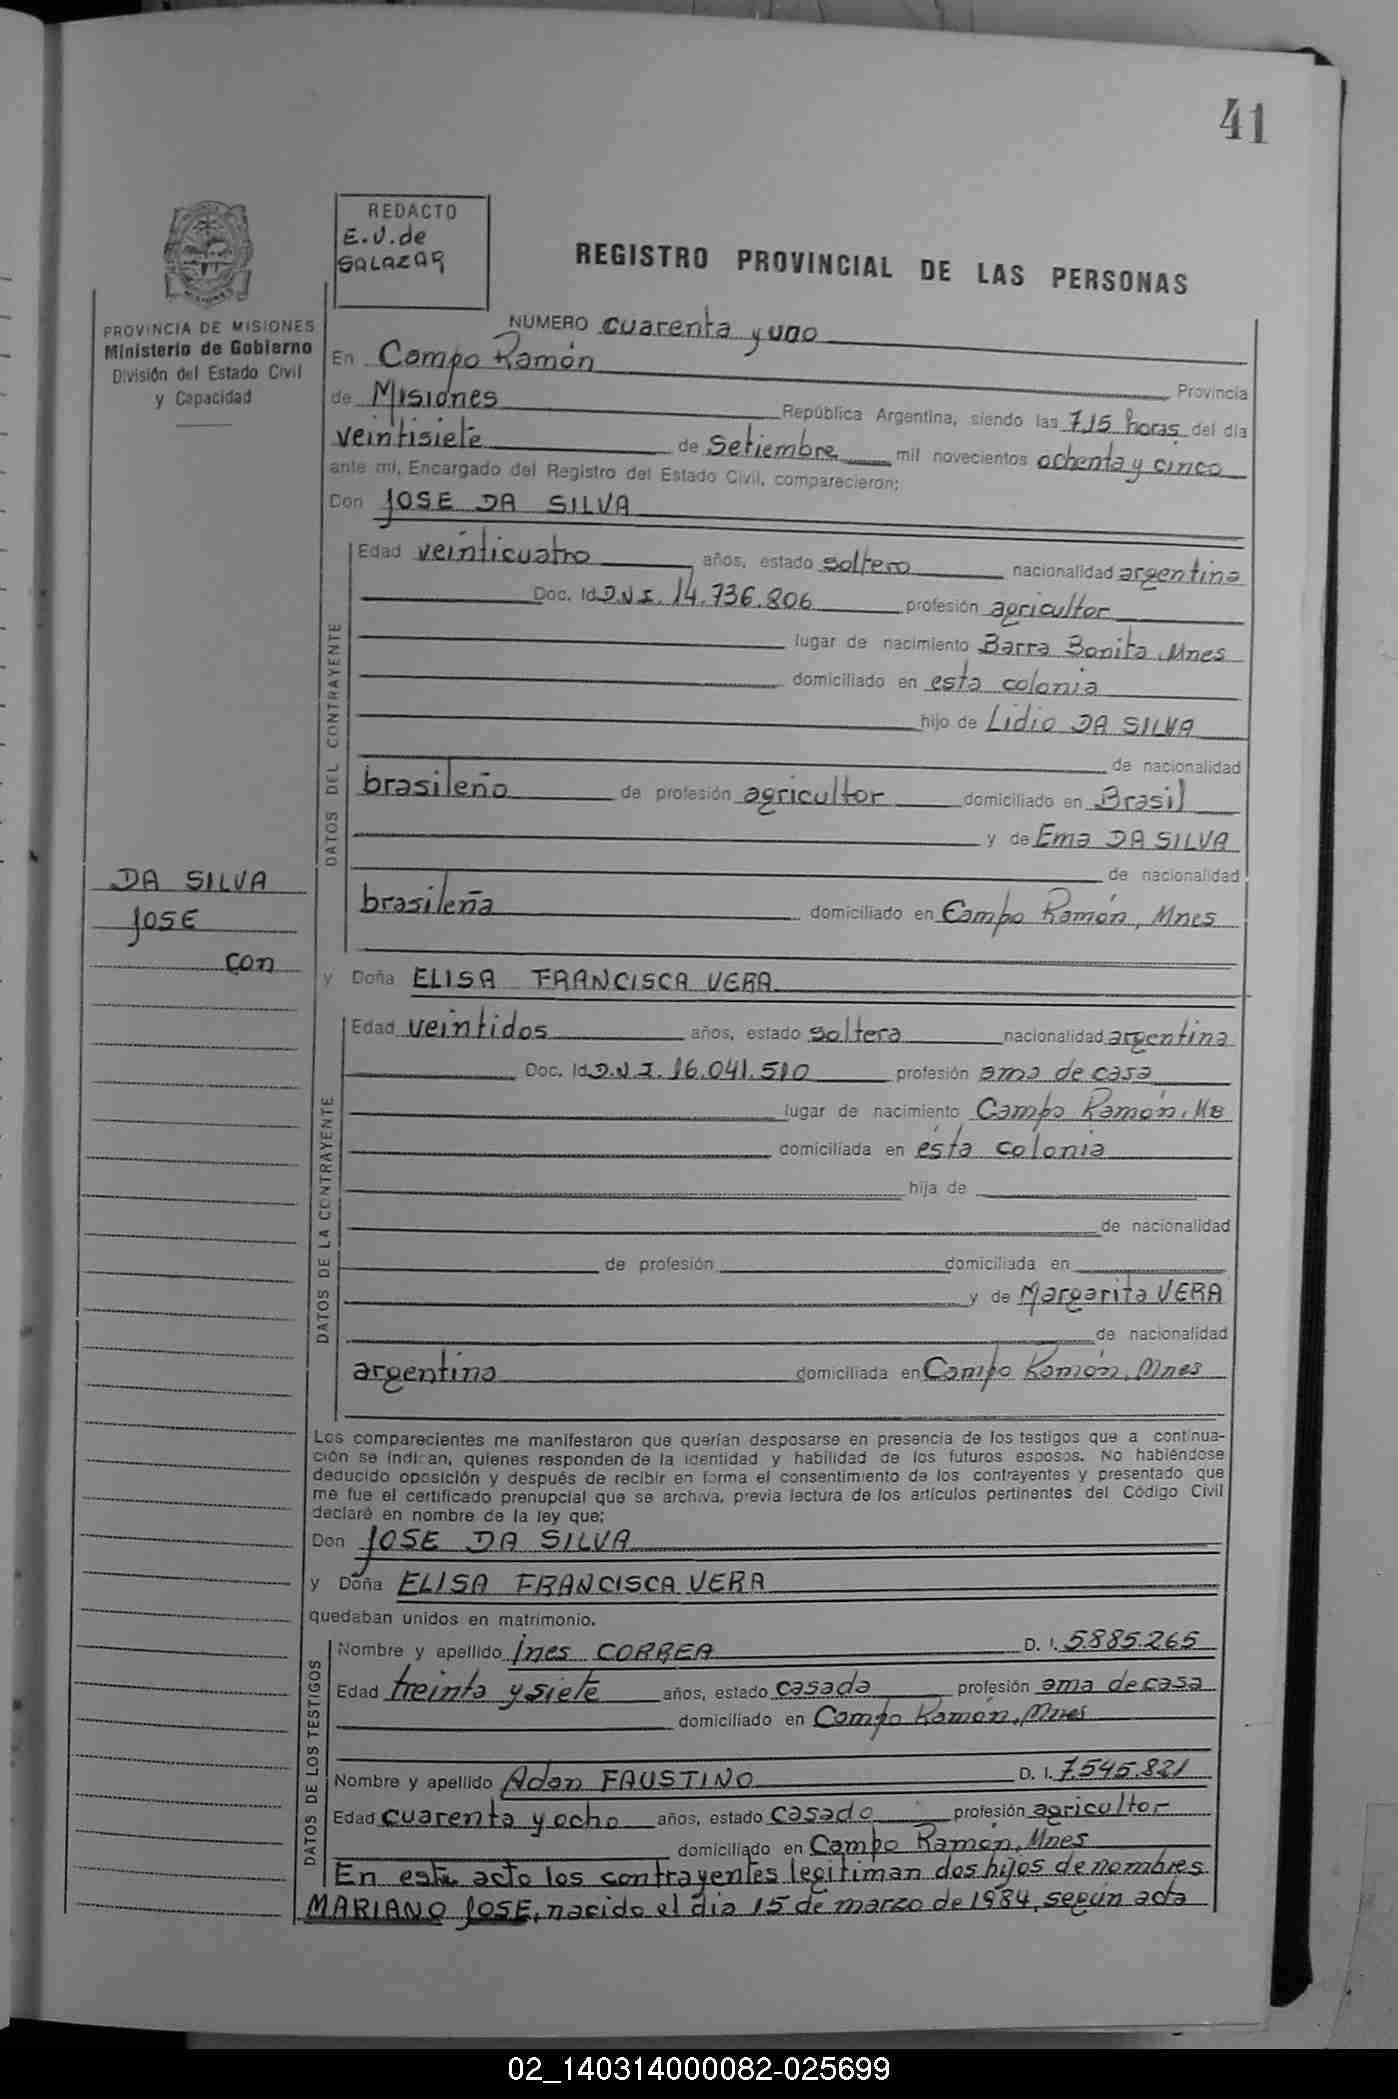 41
REDACTO
E.V. de
SALAZAR
REGISTRO PROVINCIAL DE LAS PERSONAS
PROVINCIA DE MISIONES
Ministerio de Gobierno
División del Estado Civil
y Capacidad
NUMERO cuarenta y uno
En Campo Ramón Provincia
de Misiones República Argentina, siendo las 7,15 horas del día
veintisiete de Setiembre mil novecientos ochenta y cinco
ante mí, Encargado del Registro del Estado Civil, comparecieron:
Don JOSE DA SILVA
DATOS DEL CONTRAYENTE
Edad veinticuatro años, estado soltero nacionalidad argentina
Doc. Id D.N.I. 14.736.806 profesión agricultor
lugar de nacimiento Barra Bonita, Mnes
domiciliado en esta colonia
hijo de Lidio DA SILVA
de nacionalidad
brasileño de profesión agricultor domiciliado en Brasil
y de Ema DA SILVA
de nacionalidad
brasileña domiciliado en Campo Ramón, Mnes
DA SILVA
JOSE
con
y Doña ELISA FRANCISCA VERA
DATOS DE LA CONTRAYENTE
Edad veintidos años, estado soltera nacionalidad argentina
Doc. Id D.N.I. 16.041.510 profesión ama de casa
lugar de nacimiento Campo Ramón, Ms
domiciliada en ésta colonia
hija de
de nacionalidad
de profesión domiciliada en
y de Margarita VERA
de nacionalidad
argentina domiciliada en Campo Ramón, Mnes
Los comparecientes me manifestaron que querían desposarse en presencia de los testigos que a continua-
ción se indican, quienes responden de la identidad y habilidad de los futuros esposos. No habiéndose
deducido oposición y después de recibir en forma el consentimiento de los contrayentes y presentado que
me fue el certificado prenupcial que se archiva, previa lectura de los artículos pertinentes del Código Civil
declaré en nombre de la ley que:
Don JOSE DA SILVA
y Doña ELISA FRANCISCA VERA
quedaban unidos en matrimonio.
DATOS DE LOS TESTIGOS
Nombre y apellido Ines CORREA D. I. 5.885.265
Edad treinta y siete años, estado casada profesión ama de casa
domiciliado en Campo Ramón, Mnes
Nombre y apellido Adan FAUSTINO D. I. 7.545.821
Edad cuarenta y ocho años, estado casado profesión agricultor
domiciliado en Campo Ramón, Mnes
En este acto los contrayentes legitiman dos hijos de nombres
MARIANO JOSE, nacido el día 15 de marzo de 1984, según acta
02_140314000082-025699